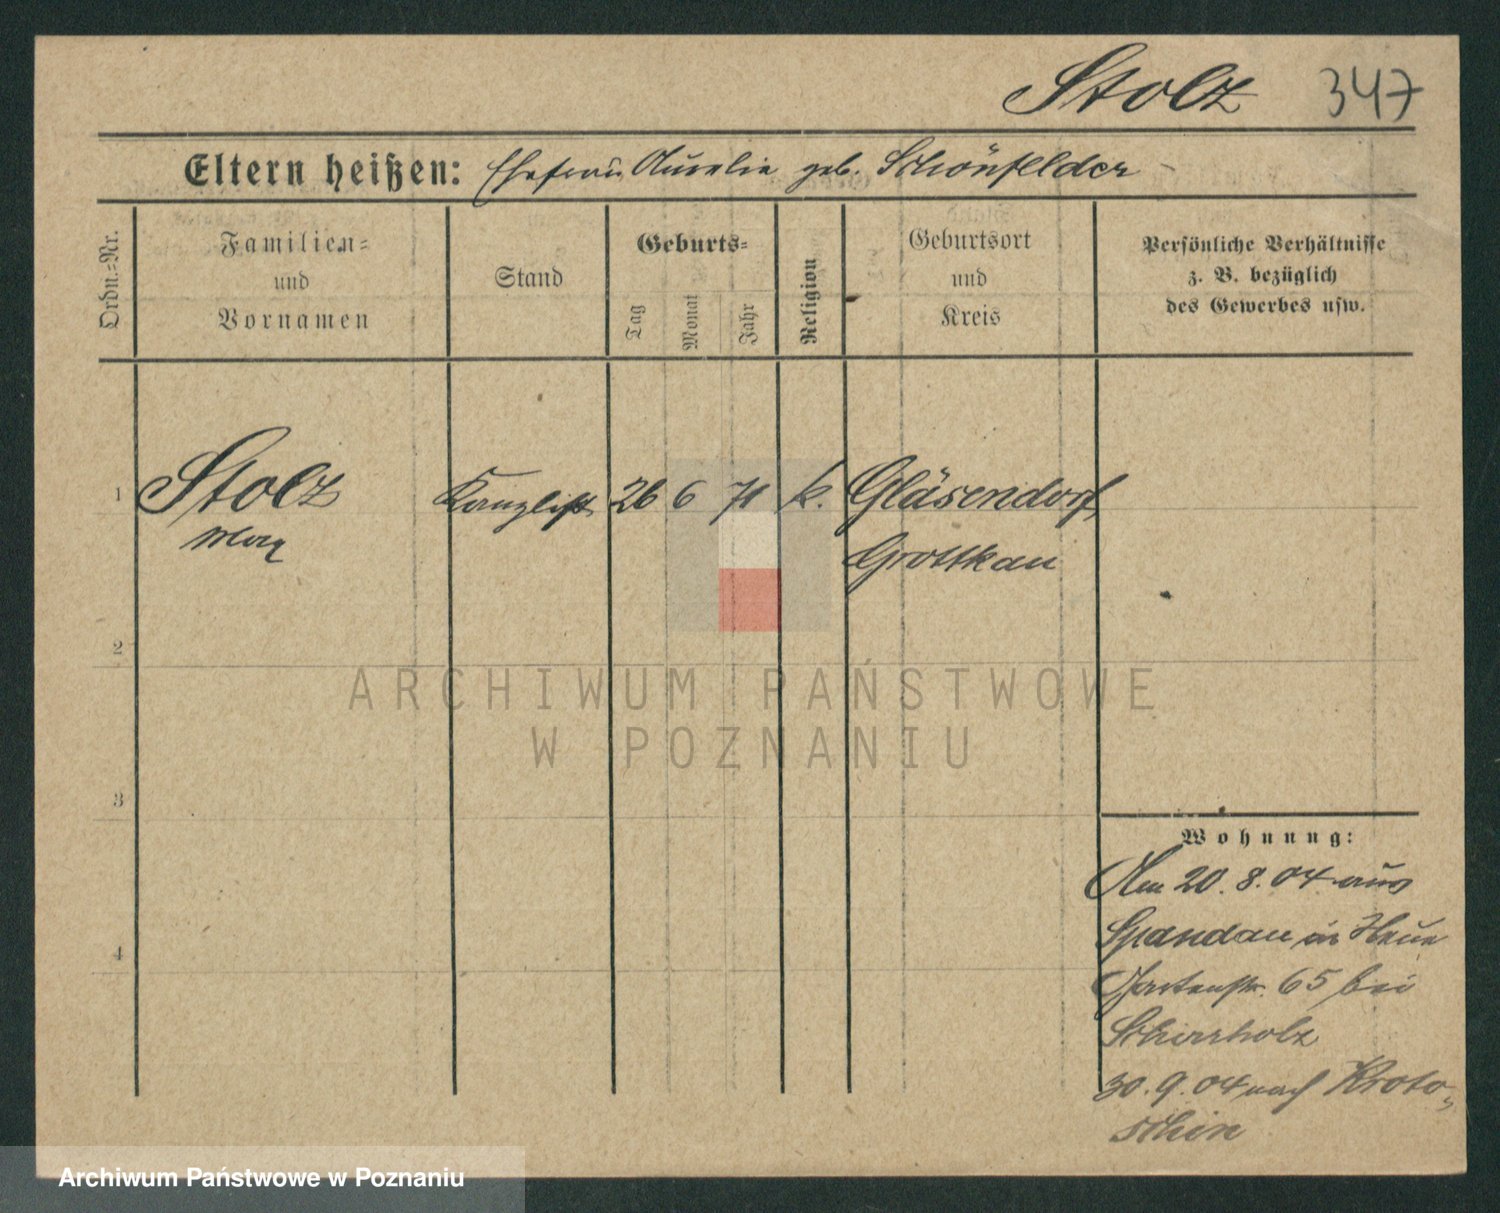 Stolz 347
Eltern heißen: Ehefrau Aurelie geb. Schönfelder
Ordn.=Nr.
Familien=
und
Vornamen
Stand
Geburts=
Tag
Monat
Jahr
Religion
Geburtsort
und
Kreis
Persönliche Verhältnisse
z. B. bezüglich
des Gewerbes usw.
1 Stolz Kanzlist 26 6 71 k. Gläsendorf
Max Grottkau
2
3
4
Wohnung:
Am 20. 8. 04 aus
Spandau in
Gartenstr. 65 bei
Schirrholz
30. 9. 04 nach Kroto-
schin
ARCHIWUM PAŃSTWOWE
W POZNANIU
Archiwum Państwowe w Poznaniu